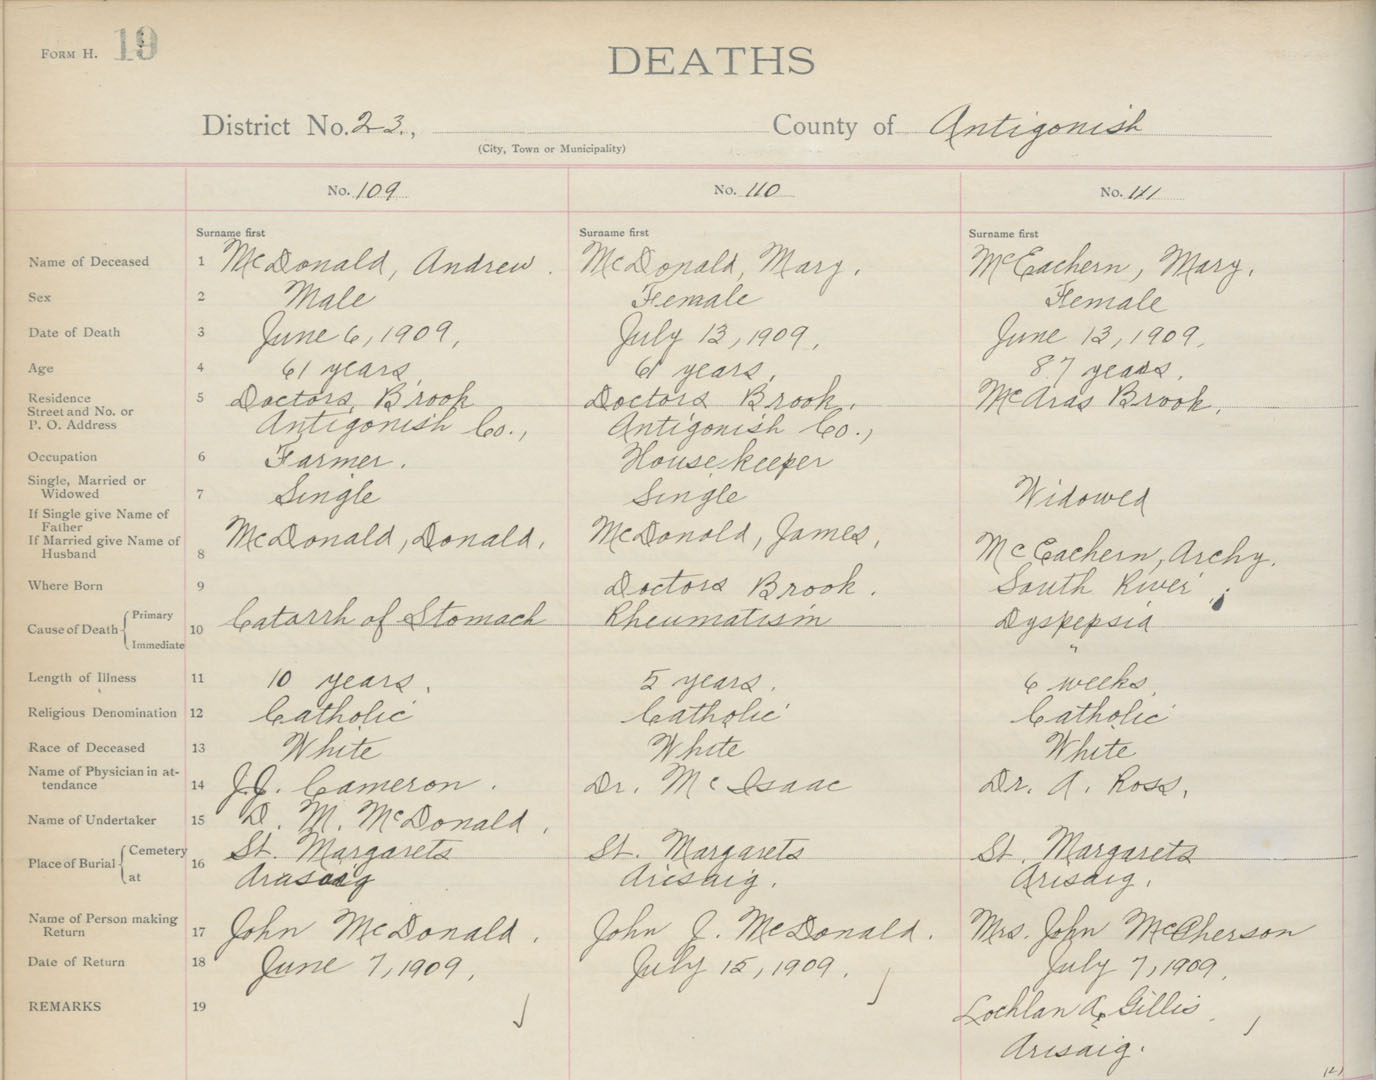 FORM H. 19
DEATHS
District No. 23., County of Antigonish
(City, Town or Municipality)
No. 109 No. 110 No. 111
Surname first Surname first Surname first
Name of Deceased 1 McDonald, Andrew. McDonald, Mary. McEachern, Mary.
Sex 2 Male Female Female
Date of Death 3 June 6, 1909, July 13, 1909, June 13, 1909,
Age 4 61 years, 61 years, 87 years.
Residence 5 Doctors Brook Doctors Brook, McAras Brook,
Street and No. or
P. O. Address Antigonish Co., Antigonish Co.,
Occupation 6 Farmer. Housekeeper
Single, Married or
Widowed 7 Single Single Widowed
If Single give Name of
Father
If Married give Name of
Husband 8 McDonald, Donald, McDonald, James, McEachern, Archy.
Where Born 9 Doctors Brook. South River
Cause of Death { Primary Immediate 10 Catarrh of Stomach Rheumatism Dyspepsia
"
Length of Illness 11 10 years, 5 years. 6 weeks,
Religious Denomination 12 Catholic Catholic Catholic
Race of Deceased 13 White White White
Name of Physician in at-
tendance 14 J.J. Cameron. Dr. McIsaac Dr. A. Ross,
Name of Undertaker 15 D. M. McDonald,
Place of Burial { Cemetery at 16 St. Margarets St. Margarets St. Margarets
Arasaig Arisaig. Arisaig.
Name of Person making
Return 17 John McDonald, John J. McDonald. Mrs. John McPherson
Date of Return 18 June 7, 1909, July 15, 1909, July 7, 1909,
REMARKS 19 Lochlan A. Gillis,
Arisaig.